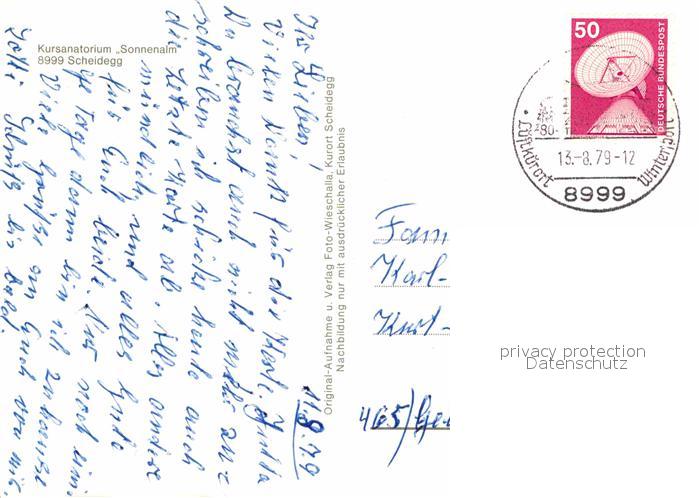 Kursanatorium „Sonnenalm"
8999 Scheidegg
11.8.79
Ihr Lieben!
Vielen Dank für die Karte. Jutta
Du brauchst auch nicht mehr zu
schreiben ich schicke heute auch
die letzte Karte ab. Alles andere
mündlich und alles Gute
für Euch beide. Nur noch
Tage dann bin ich zuhause
Viele Grüße an Euch von mir
bis bald.
Original-Aufnahme u. Verlag Foto-Wieschalla, Kurort Scheidegg
Nachbildung nur mit ausdrücklicher Erlaubnis
50
DEUTSCHE BUNDESPOST
80
Luftkurort
13.-8.79-12
Wintersport
8999
Fam
Karl-
Kurt-
465
privacy protection
Datenschutz